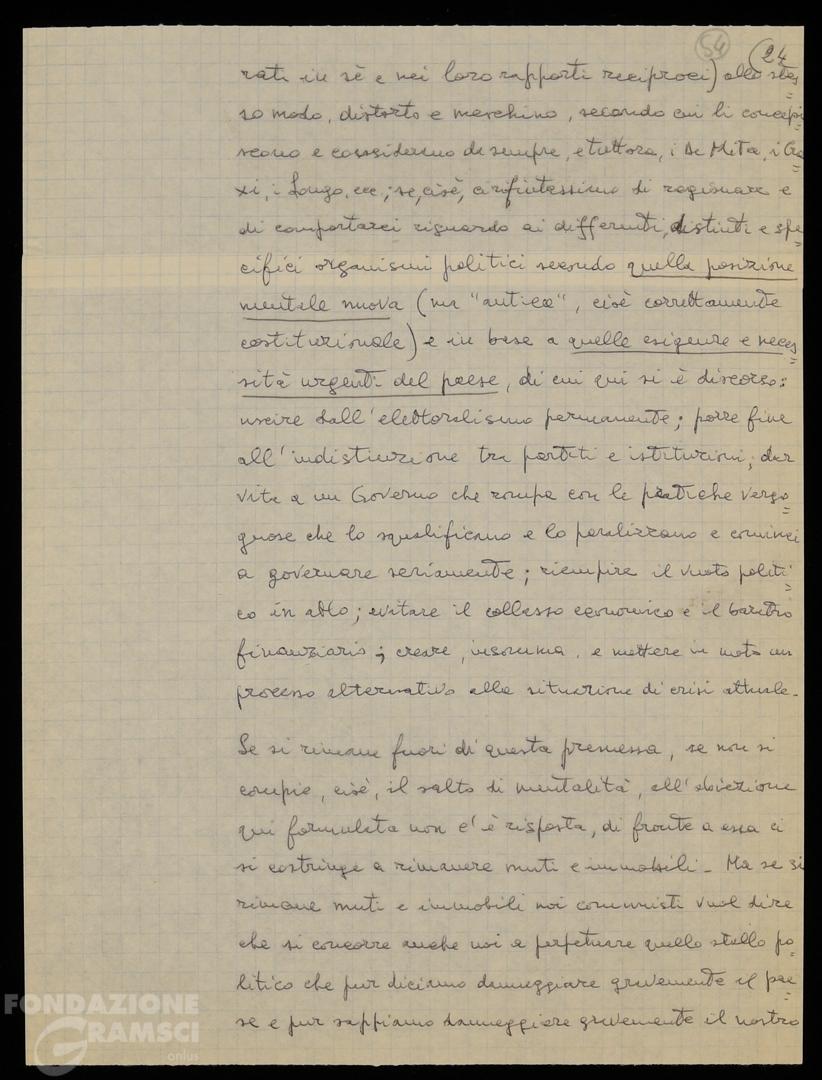 54 (24
rati in sè e nei loro rapporti reciproci) allo stes=
so modo, distorto e meschino, secondo cui li concepi=
scono e considerano da sempre, e tuttora, i De Mita, i Cra=
xi, i Longo, ecc.; se, cioè, ci rifiutassimo di ragionare e
di comportarci riguardo ai differenti, distinti e spe=
cifici organismi politici secondo quella posizione
mentale nuova (ma "antica", cioè correttamente
costituzionale) e in base a quelle esigenze e neces=
sità urgenti del paese, di cui qui si è discorso:
uscire dall'elettoralismo permanente; porre fine
all'indistinzione tra partiti e istituzioni; dar
vita a un Governo che rompa con le pratiche vergo=
gnose che lo squalificano e lo paralizzano e cominci
a governare seriamente; riempire il vuoto politi=
co in atto; evitare il collasso economico e il baratro
finanziario; creare, insomma, e mettere in moto un
processo alternativo alla situazione di crisi attuale.
Se si rimane fuori di questa premessa, se non si
compie, cioè, il salto di mentalità, all'obiezione
qui formulata non c'è risposta, di fronte a essa ci
si costringe a rimanere muti e immobili. Ma se si
rimane muti e immobili noi comunisti vuol dire
che si concorre anche noi a perpetuare quello stallo po=
litico che pur diciamo danneggiare gravemente il pae=
se e pur sappiamo danneggiare gravemente il nostro
FONDAZIONE
GRAMSCI
onlus